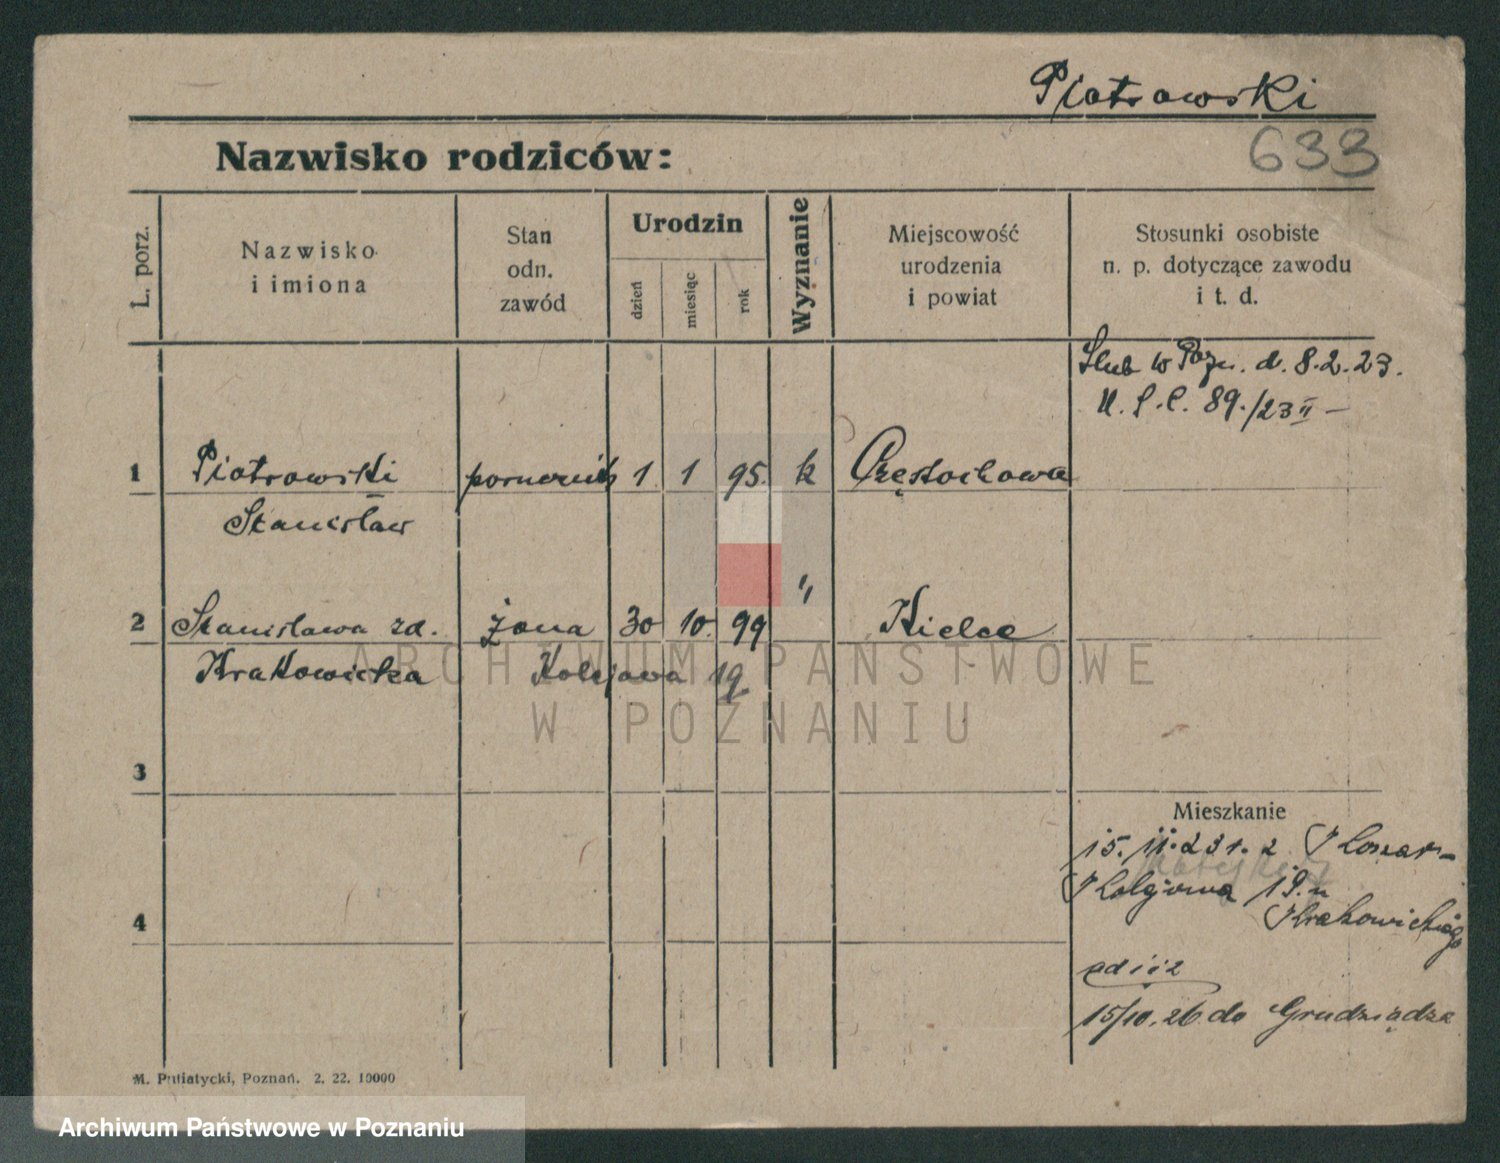 Piotrowski
633
Nazwisko rodziców:
L. porz.
Nazwisko
i imiona
Stan
odn.
zawód
Urodzin
dzień
miesiąc
rok
Wyznanie
Miejscowość
urodzenia
i powiat
Stosunki osobiste
n. p. dotyczące zawodu
i t. d.
Ślub w Pozn. d. 8.2.23.
U. S. C. 89./23 II –
1 Piotrowski 1 1 95. k Częstochowa
Stanisław
2 Stanisława zd. żona 30 10. 99 " Kielce
Krakowicka Kolejowa 19
3
Mieszkanie
15. 11. 23 r. z
Kolejowa 19. u
Krakowickiego
4
15/10. 26 do Grudziądza
M. Putiatycki, Poznań. 2. 22. 10000
ARCHIWUM PAŃSTWOWE
W POZNANIU
Archiwum Państwowe w Poznaniu